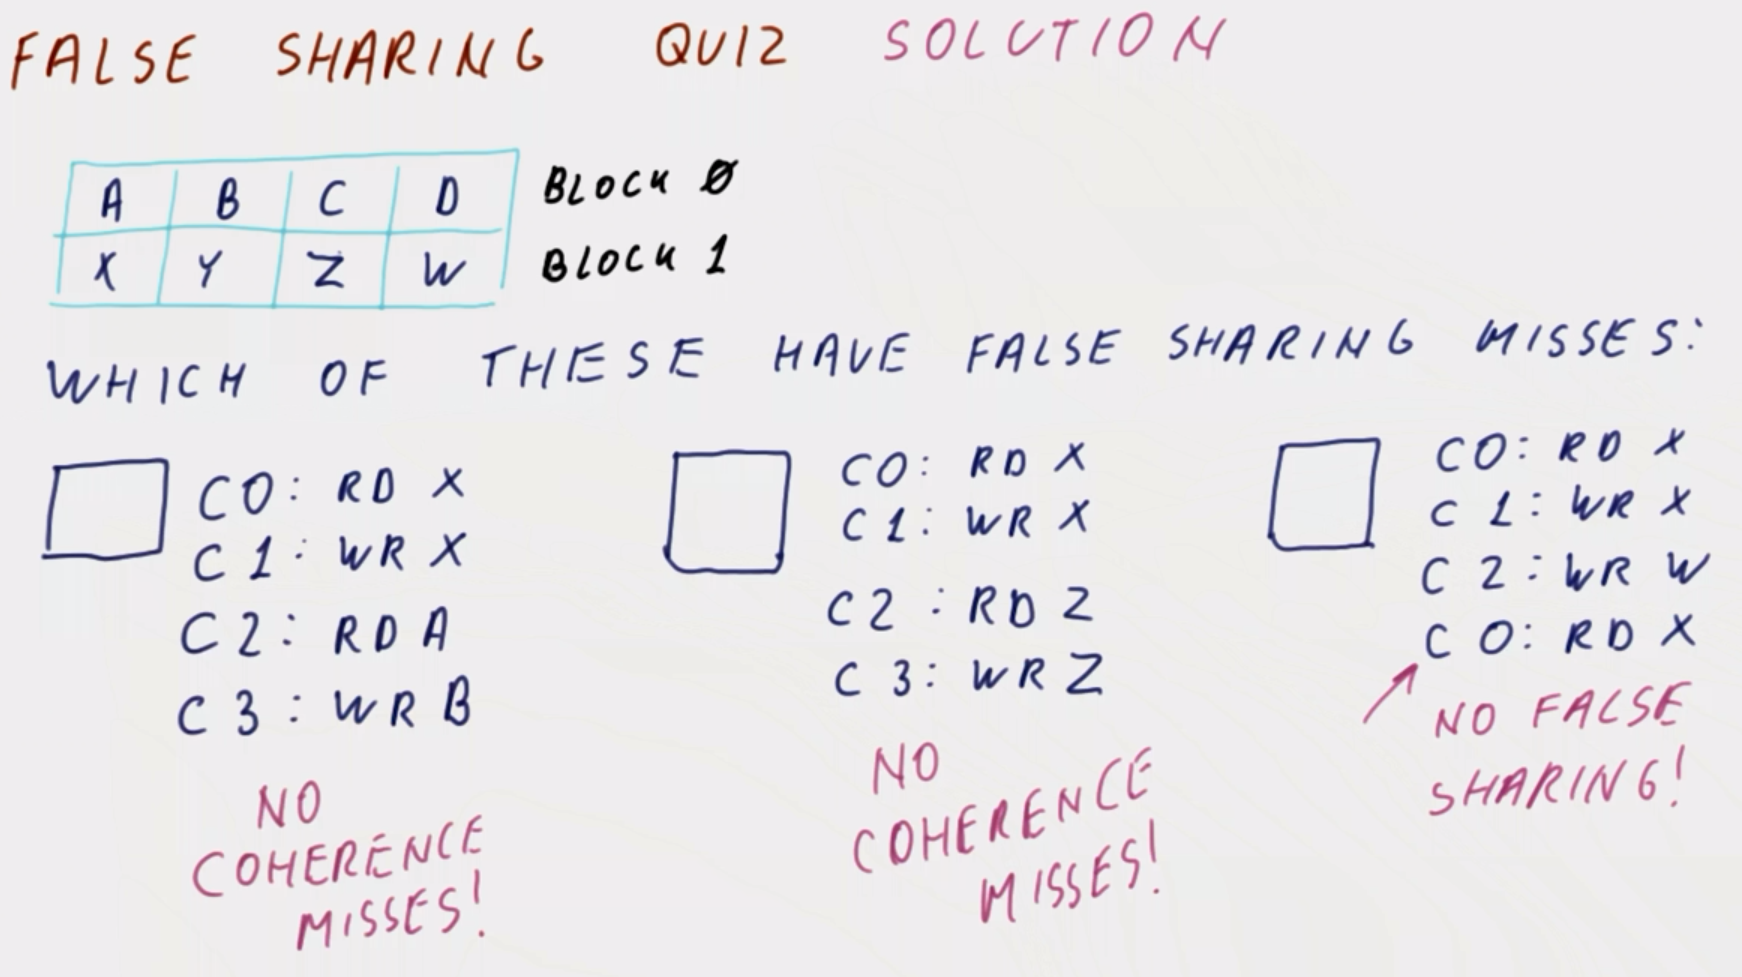 FALSE SHARING QUIZ SOLUTION
A B C D BLOCK 0
X Y Z W BLOCK 1
WHICH OF THESE HAVE FALSE SHARING MISSES:
C0: RD X
C1: WR X
C2: RD A
C3: WR B
NO
COHERENCE
MISSES!
C0: RD X
C1: WR X
C2: RD Z
C3: WR Z
NO
COHERENCE
MISSES!
C0: RD X
C1: WR X
C2: WR W
C0: RD X
NO FALSE
SHARING!